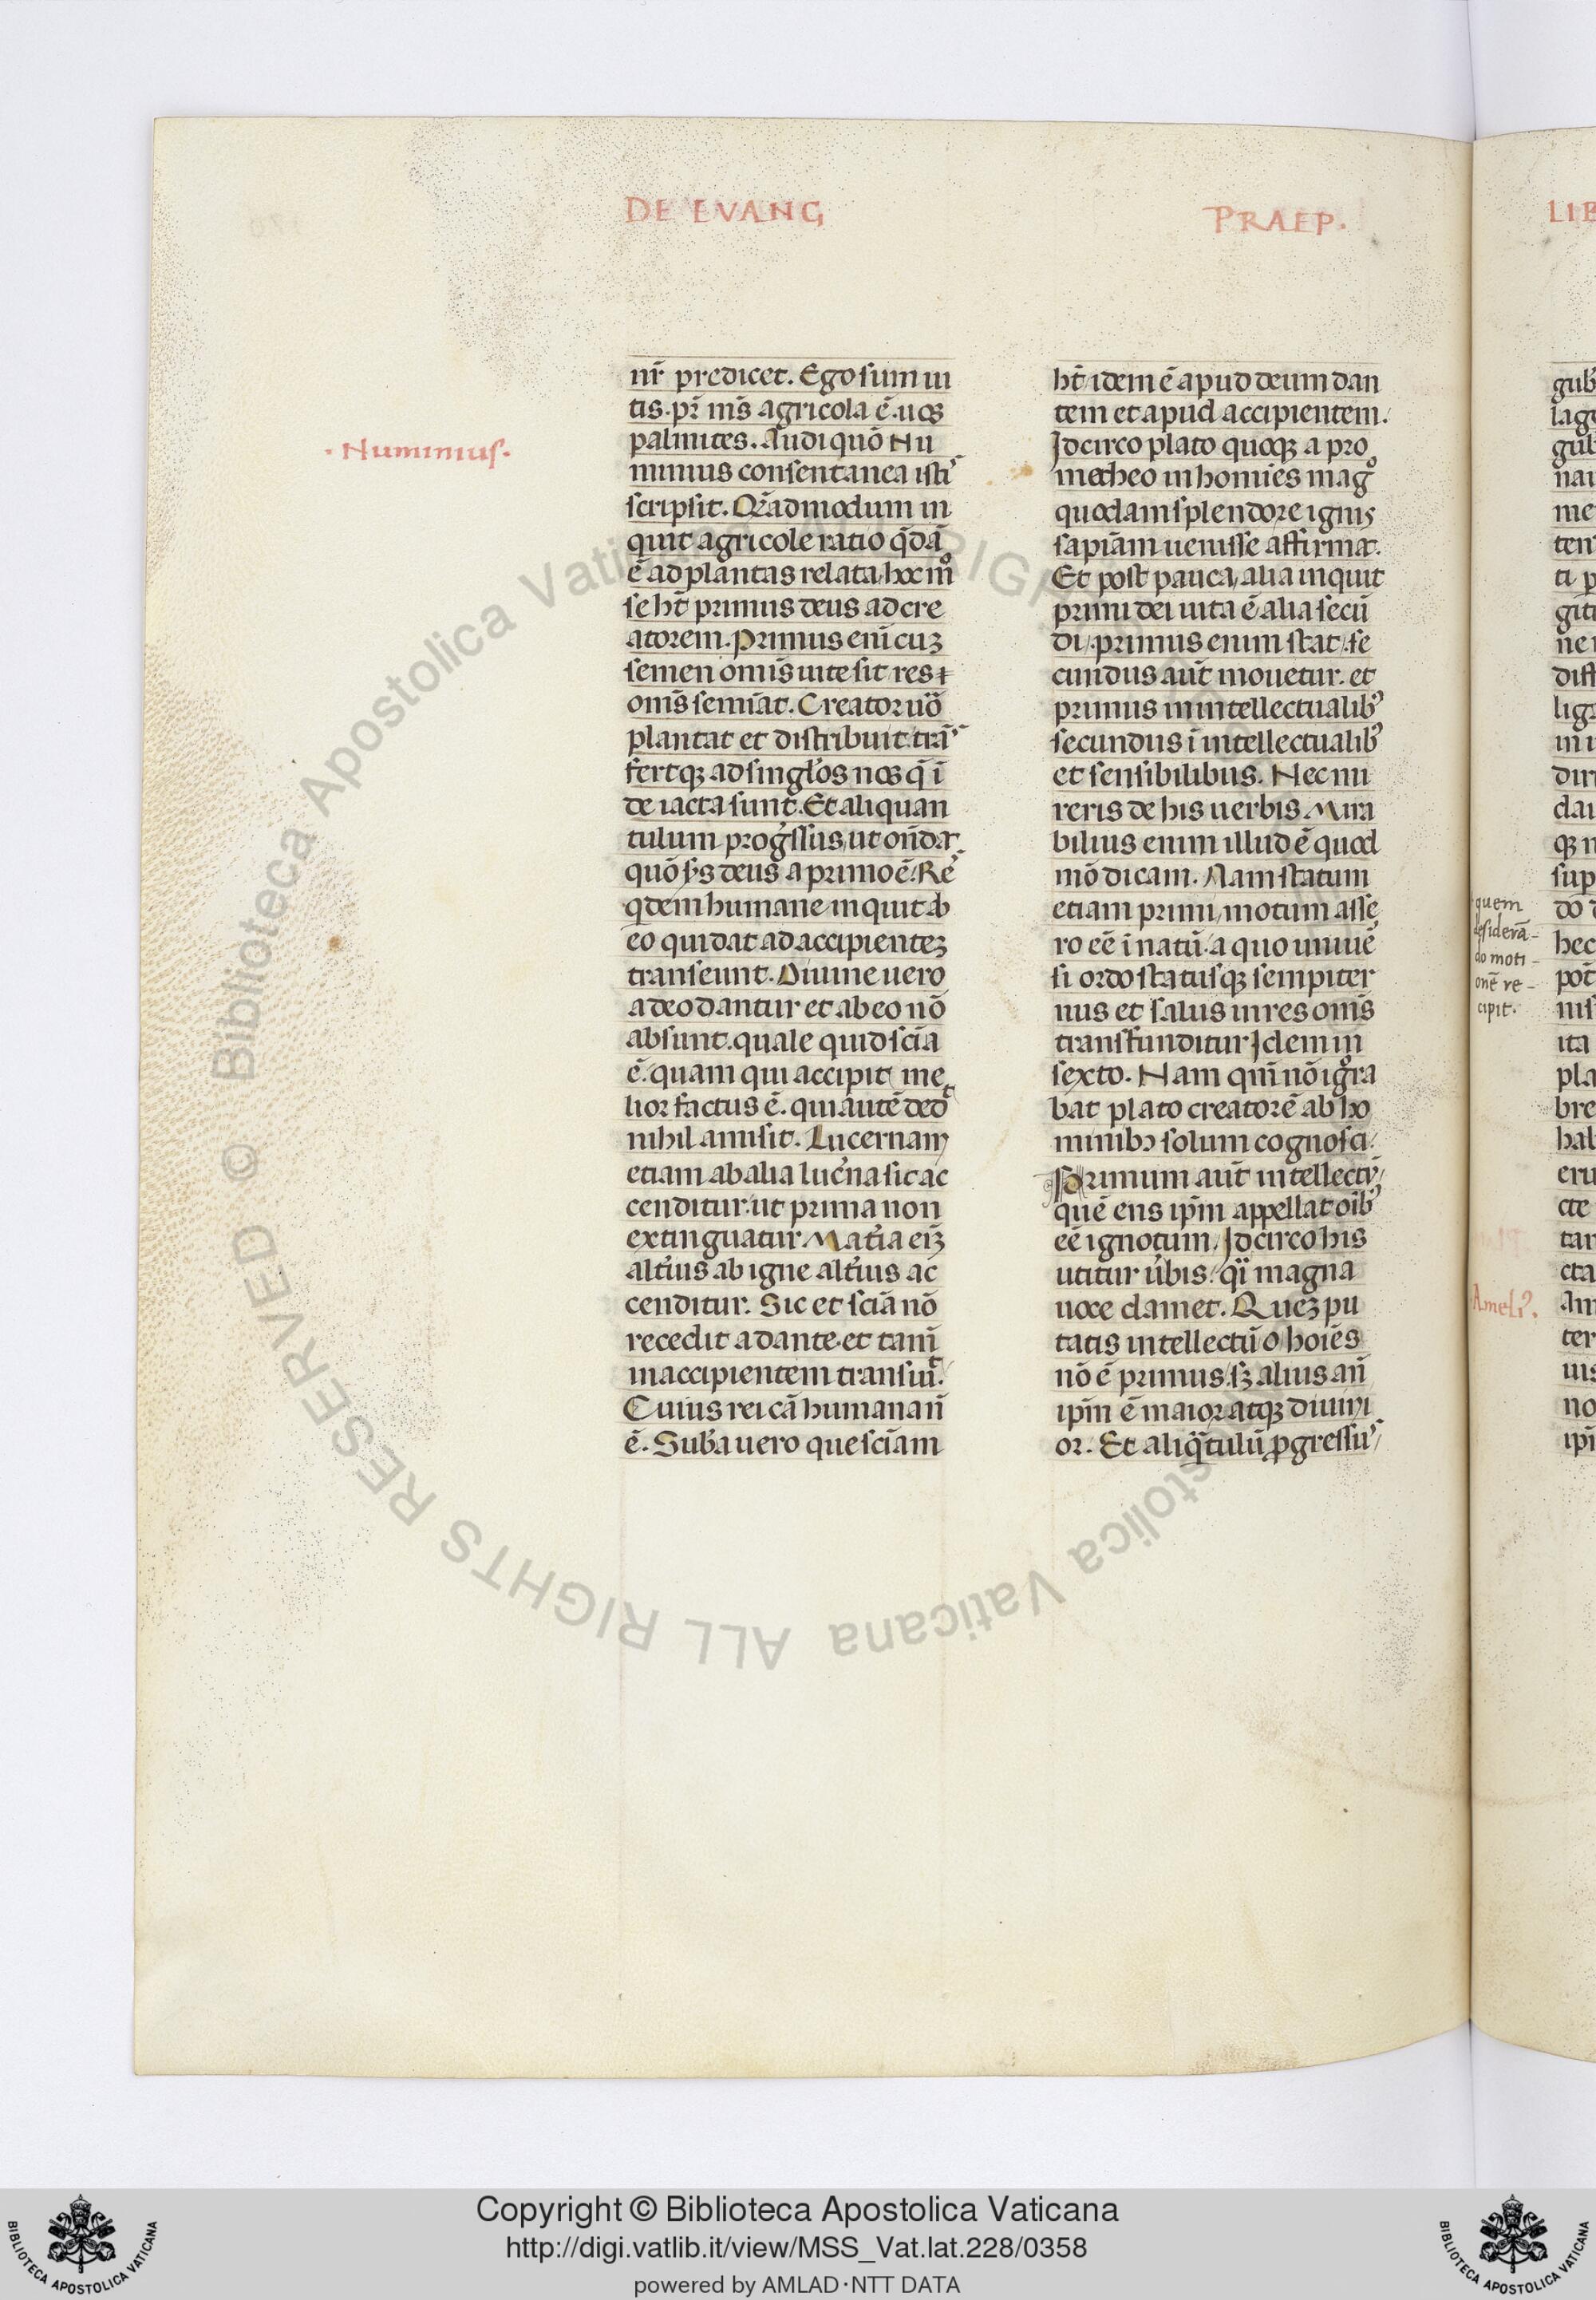 DE EVANG
PRAEP.
nr̄ predicet. Ego sum ui
tis. pr̄ ms̄ agricola ē. uos
palmites. Audi quō Nu
·Numinius.
minius consentanea isti
scripsit. Qr̄admodum in
quit agricole ratio q̄dā
ē ad plantas relata, hoc mo
se hr̄t primus deus ad cre
atorem. Primus enī cuꝫ
semen omīs uite sit res ⁊
omīs semīat. Creator uo
plantat et distribuit. trā
fertqꝫ ad singl̄os nos q̄ ī
de iacta sunt. Et aliquan
tulum prog̃ssus, ut on̄dat
quō s̄ꝰs deus a primo ē. Re
q̄dem humane inquit ab
eo qui dat ad accipienteꝫ
transeunt. Diuine uero
a deo dantur et ab eo nō
absunt. quale quid scīa
ē. quam qui accipit, me
lior factus ē. qui autē dedt
nihil amisit. Lucernam
etiam ab alia luc̄na sic ac
cenditur. ut prima non
extinguatur. Mat̄ia eiꝫ
alt̄ius ab igne alt̄ius ac
cenditur. Sic et scīa nō
recedit a dante. et tam̄
in accipientem transiuit.
Cuius rei cā humana nō
ē. Sub̄a uero que scīam
hr̄t idem ē apud deum dan
tem et apud accipientem.
Idcirco plato quoqꝫ a pro
metheo in homīes mago
quodam splendore ignis
sapīam uenisse affirmat.
Et post pauca, alia inquit
primi dei uita ē alia secū
di. primus enim stat, se
cundus aut̄ mouetur. et
primus in intellectualibꝰ
secundus ī intellectualibꝰ
et sensibilibus. Nec mi
reris de his uerbis. Mira
bilius enim illud ē quod
mō dicam. Nam statum
etiam primi, motum asse
ro eē īnatū. a quo uniuē
si ordo statusqꝫ sempiter
nus et salus in res omīs
transfunditur. Idem in
sexto. Nam qm̄ nō ig̊ra
bat plato creatorē ab ho
minibꝫ solum cognosci.
Primum aut̄ intellectū,
quē ens ipm̄ appellat oībꝰ
eē ignotum. Idcirco his
utitur ūbis. q̄i magna
uoce clamet. Queꝫ pu
tatis intellectū o hoīes
nō ē primus. sꝫ alius an̄
ipm̄ ē maior atqꝫ diuini
or. Et aliq̄tulū ꝓgressus
LIB
quem
desiderā-
do moti-
onē re-
cipit.
Ameliꝰ.
Copyright © Biblioteca Apostolica Vaticana
http://digi.vatlib.it/view/MSS_Vat.lat.228/0358
powered by AMLAD·NTT DATA
BIBLIOTECA APOSTOLICA VATICANA
BIBLIOTECA APOSTOLICA VATICANA
© Biblioteca Apostolica Vaticana ALL RIGHTS RESERVED